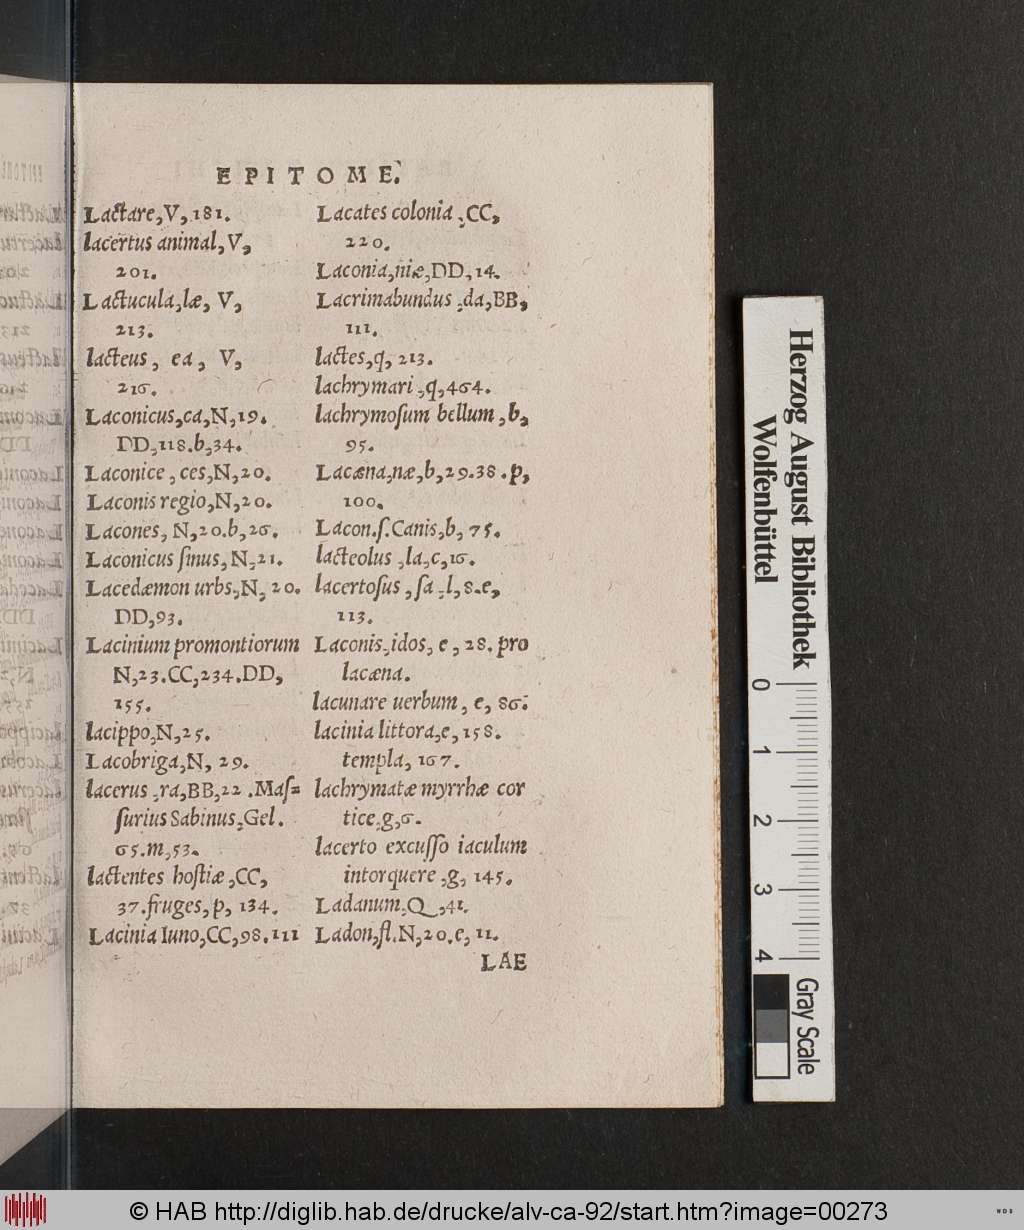 EPITOME.
Lactare,V,181.
lacertus animal,V,
201.
Lactucula,læ, V,
213.
lacteus, ea, V,
216.
Laconicus,ca,N,19.
DD,118.b,34.
Laconice, ces,N,20.
Laconis regio,N,20.
Lacones, N,20.b,26.
Laconicus ſinus, N,21.
Lacedæmon urbs,N, 20.
DD,93.
Lacinium promontiorum
N,23.CC,234.DD,
155.
lacippo,N,25.
Lacobriga,N, 29.
lacerus ,ra,BB,22 .Maſ=
ſurius Sabinus,Gel.
65.m,53.
lactentes hoſtiæ,CC,
37.fruges,p, 134.
Lacinia Iuno,CC,98.111
Lacates colonia ,CC,
220.
Laconia,niæ,DD,14.
Lacrimabundus ,da,BB,
111.
lactes,q, 213.
lachrymari ,q,464.
lachrymoſum bellum ,b,
95.
Lacæna,næ,b,29.38.p,
100.
Lacon.ſ.Canis,b, 75.
lacteolus ,la,c,16.
lacertoſus , ſa ,l,8.e,
113.
Laconis,idos, e, 28. pro
lacæna.
lacunare uerbum, e, 86.
lacinia littora,e, 158.
templa, 167.
lachrymatæ myrrhæ cor
tice,g,6.
lacerto excuſſo iaculum
intorquere ,g, 145.
Ladanum,Q,41.
Ladon,fl.N,20.e, 11.
LAE
Herzog August Bibliothek
Wolfenbüttel
0 1 2 3 4
Gray Scale
© HAB http://diglib.hab.de/drucke/alv-ca-92/start.htm?image=00273